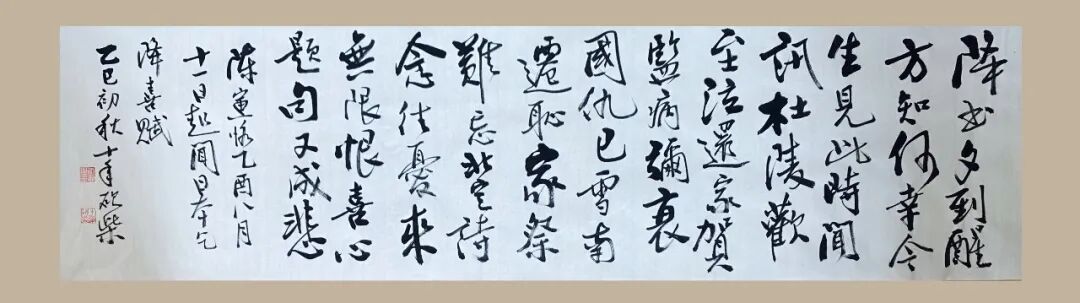 降书夕到醒
方知何幸今
生見此時聞
訊杜陵歡
至泣還家賀
監病彌衰
國仇已雪南
遷恥家祭
難忘北定詩
念往憂來
無限恨喜心
題句又成悲
陈寅恪乙酉八月
十一日起聞日本乞
降喜赋
乙巳初秋十年砍柴